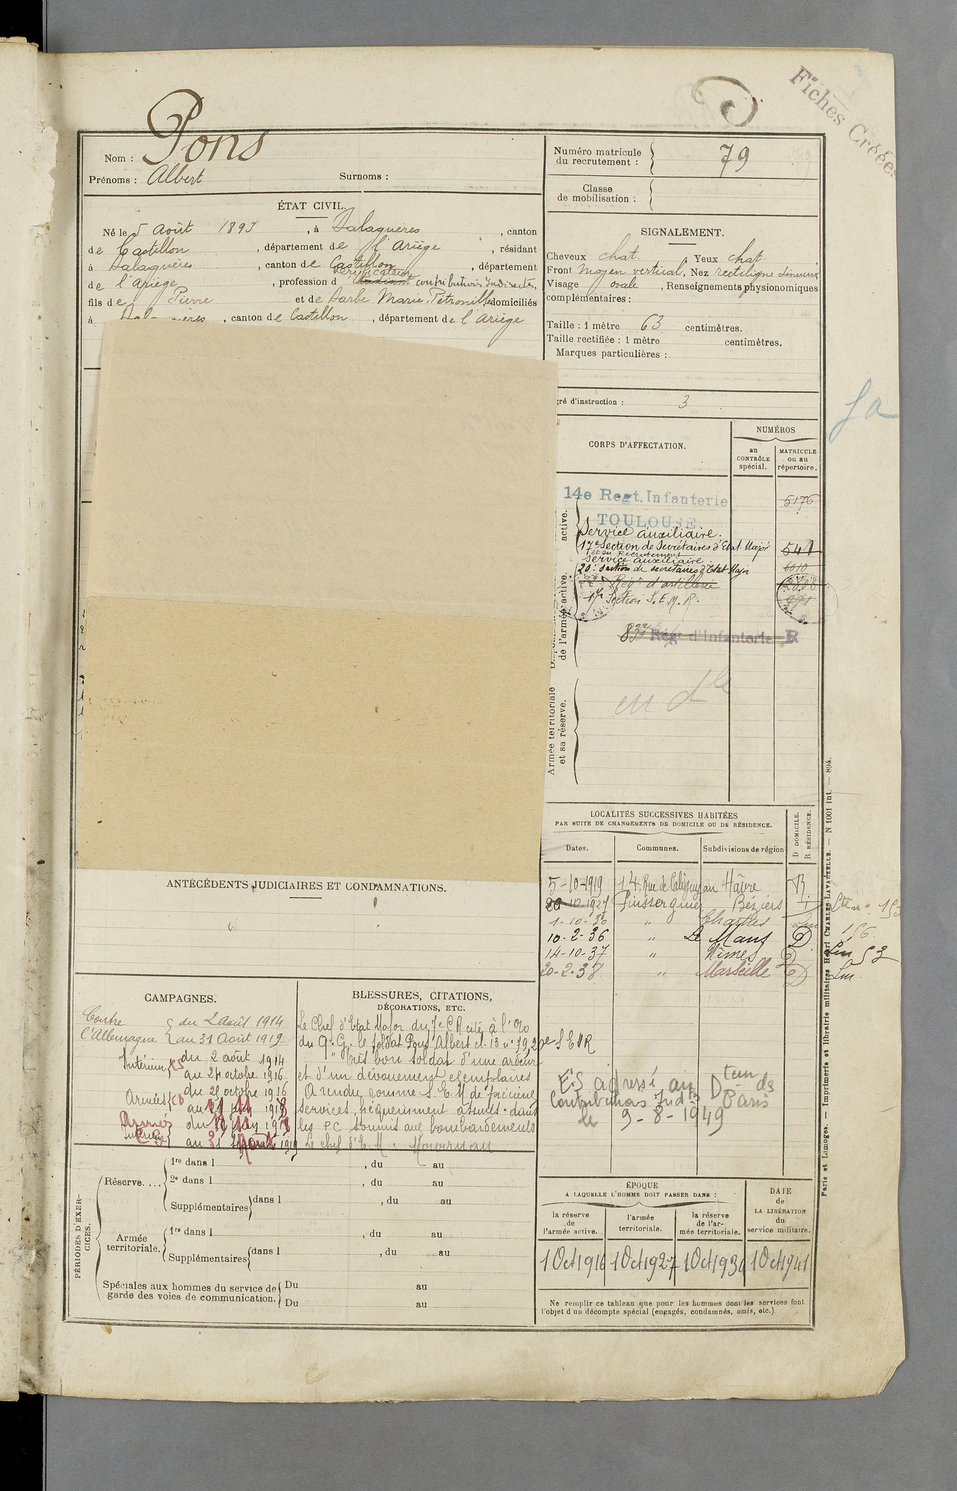 Fiches Créées
Nom : Pons
Prénoms : Albert Surnoms :
Numéro matricule du recrutement : 79
Classe de mobilisation :
ÉTAT CIVIL.
Né le 5 Août 1893, à Balaguères, canton
de Castillon, département de l'Ariège, résidant
à Balaguères, canton de Castillon, département
Vérificateur
de l'Ariège, profession d contributions Indirectes,
fils de Pierre et de Barbe Marie Pétronille domiciliés
à, canton de Castillon, département de l'Ariège
SIGNALEMENT.
Cheveux chat. Yeux chat
Front moyen vertical, Nez rectiligne sinueux
Visage ovale, Renseignements physionomiques
complémentaires :
Taille : 1 mètre 63 centimètres.
Taille rectifiée : 1 mètre centimètres.
Marques particulières :
gré d'instruction : 3
CORPS D'AFFECTATION.
NUMÉROS
au CONTRÔLE spécial.
MATRICULE ou au répertoire.
14e Regt. Infanterie 5176
TOULOUSE
Service auxiliaire.
17e Section de Secrétaires d'Etat Major 541
et du Recrutement
Service auxiliaire
20e Section de secrétaires d'Etat Major
Régt d'artillerie
Section S.E.M.R.
83e Régt d'Infanterie R
active.
de l'armée active.
Armée territoriale et sa réserve.
LOCALITÉS SUCCESSIVES HABITÉES
PAR SUITE DE CHANGEMENTS DE DOMICILE OU DE RÉSIDENCE.
Dates. Communes. Subdivisions de région D DOMICILE. R RÉSIDENCE.
5-10-1919 14 Rue de Caligny au Hâvre R
20-10-1927 Puisserguier Béziers
1-10-30 " Chartres
10-2-36 " Le Mans D
14-10-37 " Nîmes D
20-2-38 " Marseille D
ANTÉCÉDENTS JUDICIAIRES ET CONDAMNATIONS.
CAMPAGNES.
Contre du 2 Août 1914
l'Allemagne au 31 Août 1919
Intérieur CS du 2 août 1914
au 27 octobre 1916
Armées CD du 28 octobre 1916
BLESSURES, CITATIONS,
DÉCORATIONS, ETC.
Le Chef d'Etat Major du 7e CA cite à l'Ordre
du Q.G. le soldat Pons Albert
"Très bon soldat d'une ardeur
et d'un dévouement exemplaires
A rendu comme S.E.M de précieux
services, fréquemment asenti dans
les PC soumis aux bombardements
Le chef d'E.M :
ES adressé au Dteur des
Contributions Ind. Paris
le 9-8-1949
PÉRIODES D'EXERCICES.
Réserve.... 1re dans l , du au
2e dans l , du au
Supplémentaires dans l , du au
Armée territoriale. 1re dans l , du au
Supplémentaires dans l , du au
Spéciales aux hommes du service de garde des voies de communication. Du au
Du au
ÉPOQUE
A LAQUELLE L'HOMME DOIT PASSER DANS :
la réserve de l'armée active.
l'armée territoriale.
la réserve de l'armée territoriale.
DATE de LA LIBÉRATION du service militaire.
1 Oct 1916 1 Oct 1927 1 Oct 1934 1 Oct 1941
Ne remplir ce tableau que pour les hommes dont les services font
l'objet d'un décompte spécial (engagés, condamnés, omis, etc.).
Paris et Limoges. — Imprimerie et librairie militaires Henri CHARLES-LAVAUZELLE. — N 1001 int. — 894.